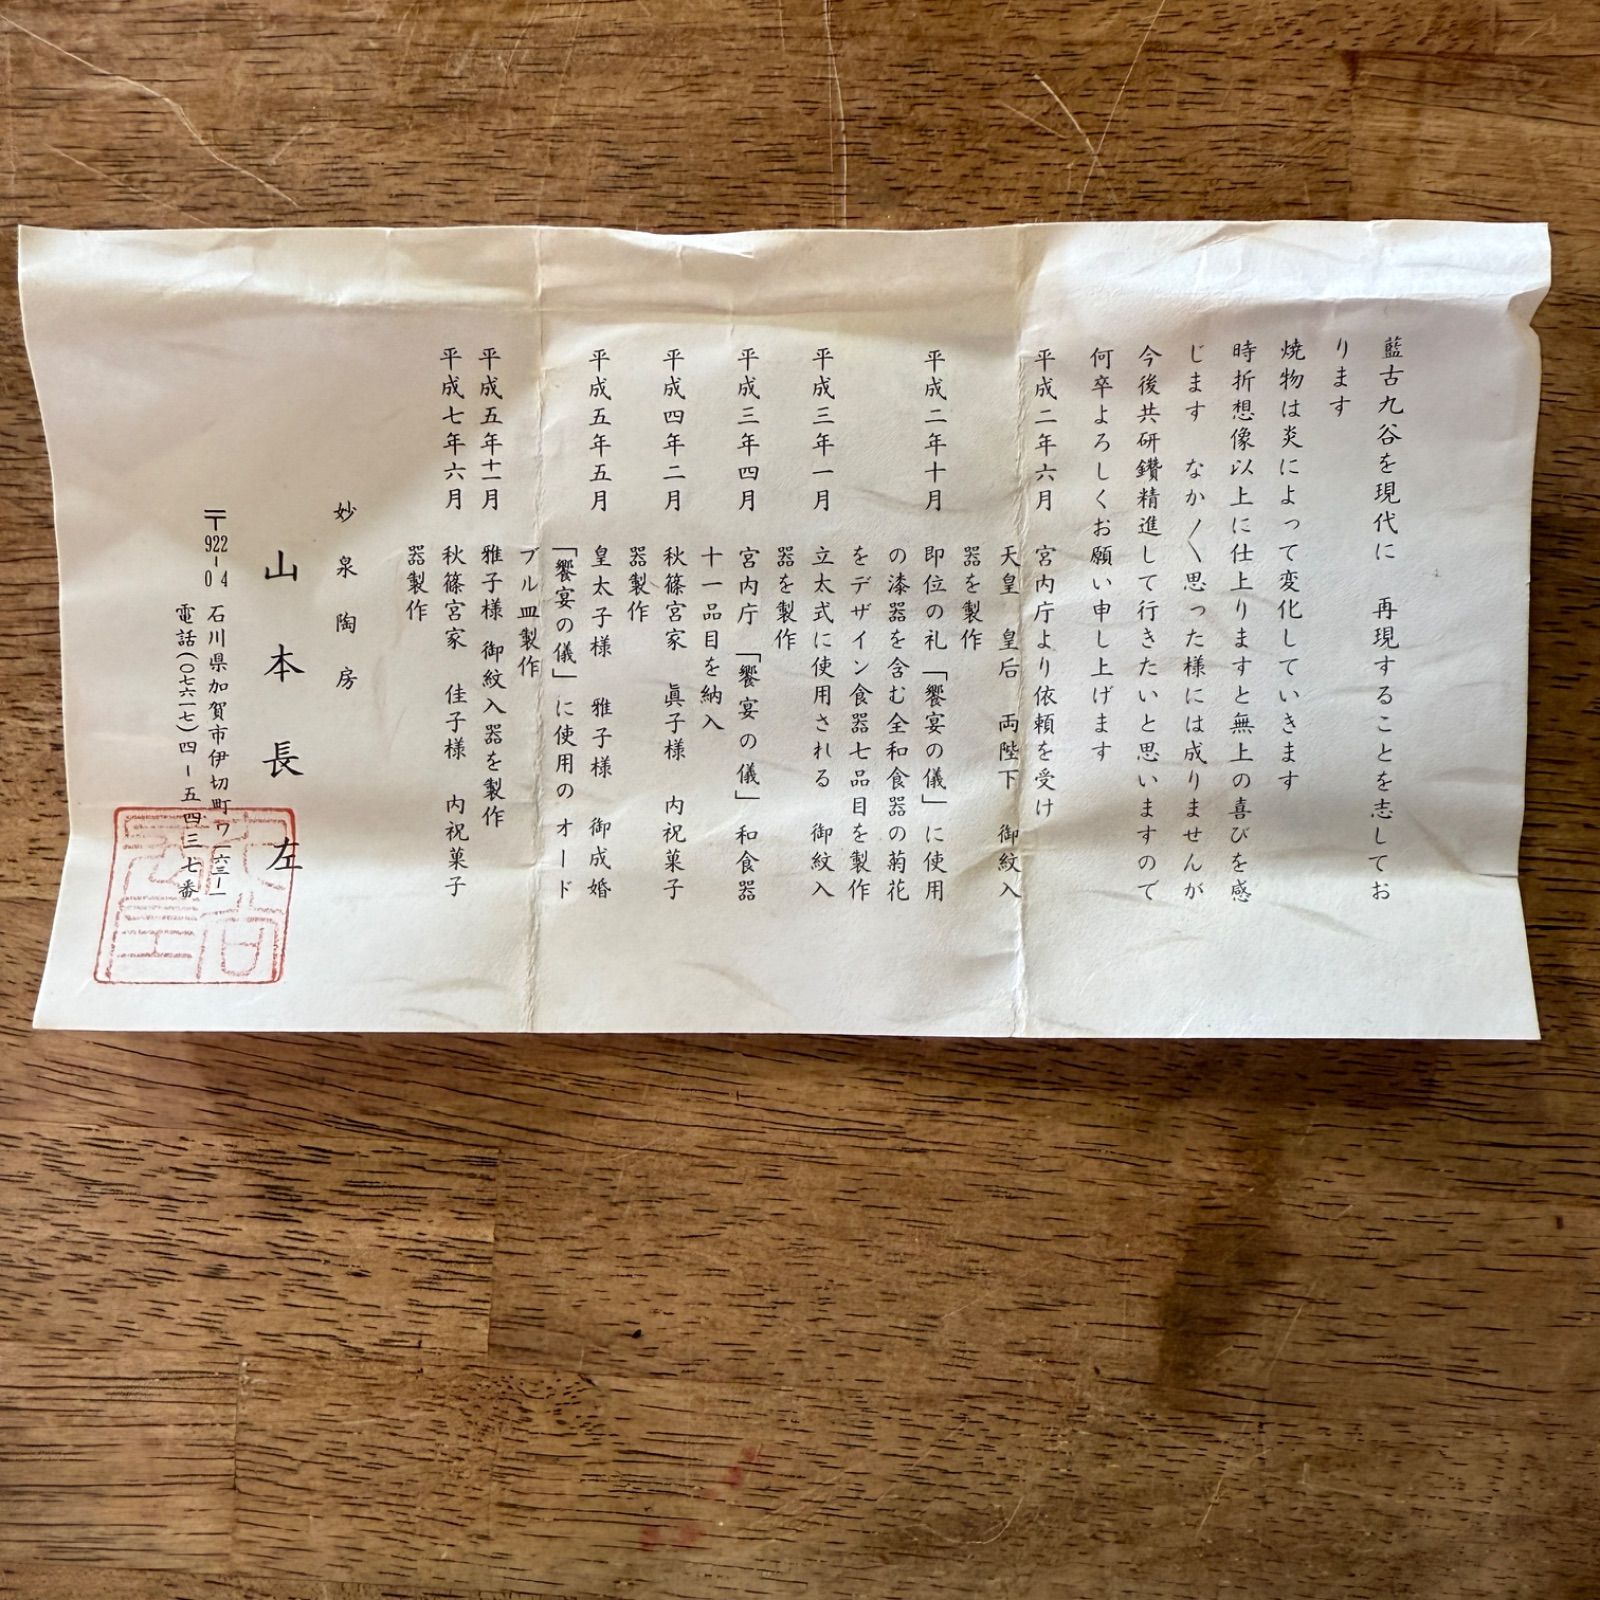 藍古九谷を現代に　再現することを志してお
ります
焼物は炎によって変化していきます
時折想像以上に仕上りますと無上の喜びを感
じます　なか〳〵思った様には成りませんが
今後共研鑽精進して行きたいと思いますので
何卒よろしくお願い申し上げます
平成二年六月　宮内庁より依頼を受け
天皇　皇后　両陛下　御紋入
器を製作
平成二年十月　即位の礼「饗宴の儀」に使用
の漆器を含む全和食器の菊花
をデザイン食器七品目を製作
平成三年一月　立太式に使用される　御紋入
器を製作
平成三年四月　宮内庁「饗宴の儀」和食器
十一品目を納入
平成四年二月　秋篠宮家　眞子様　内祝菓子
器製作
平成五年五月　皇太子様　雅子様　御成婚
「饗宴の儀」に使用のオード
ブル皿製作
平成五年十二月　雅子様　御紋入器を製作
平成七年六月　秋篠宮家　佳子様　内祝菓子
器製作
妙泉陶房
山本長左
〒922-04　石川県加賀市伊切町ワ一六三-一
電話(〇七六一七)四-五四三七番